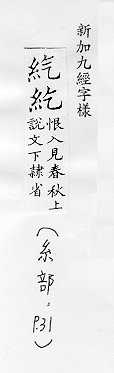 新加九經字樣
紇
恨入見春秋上
說文下隸省
（糸部。P.31）